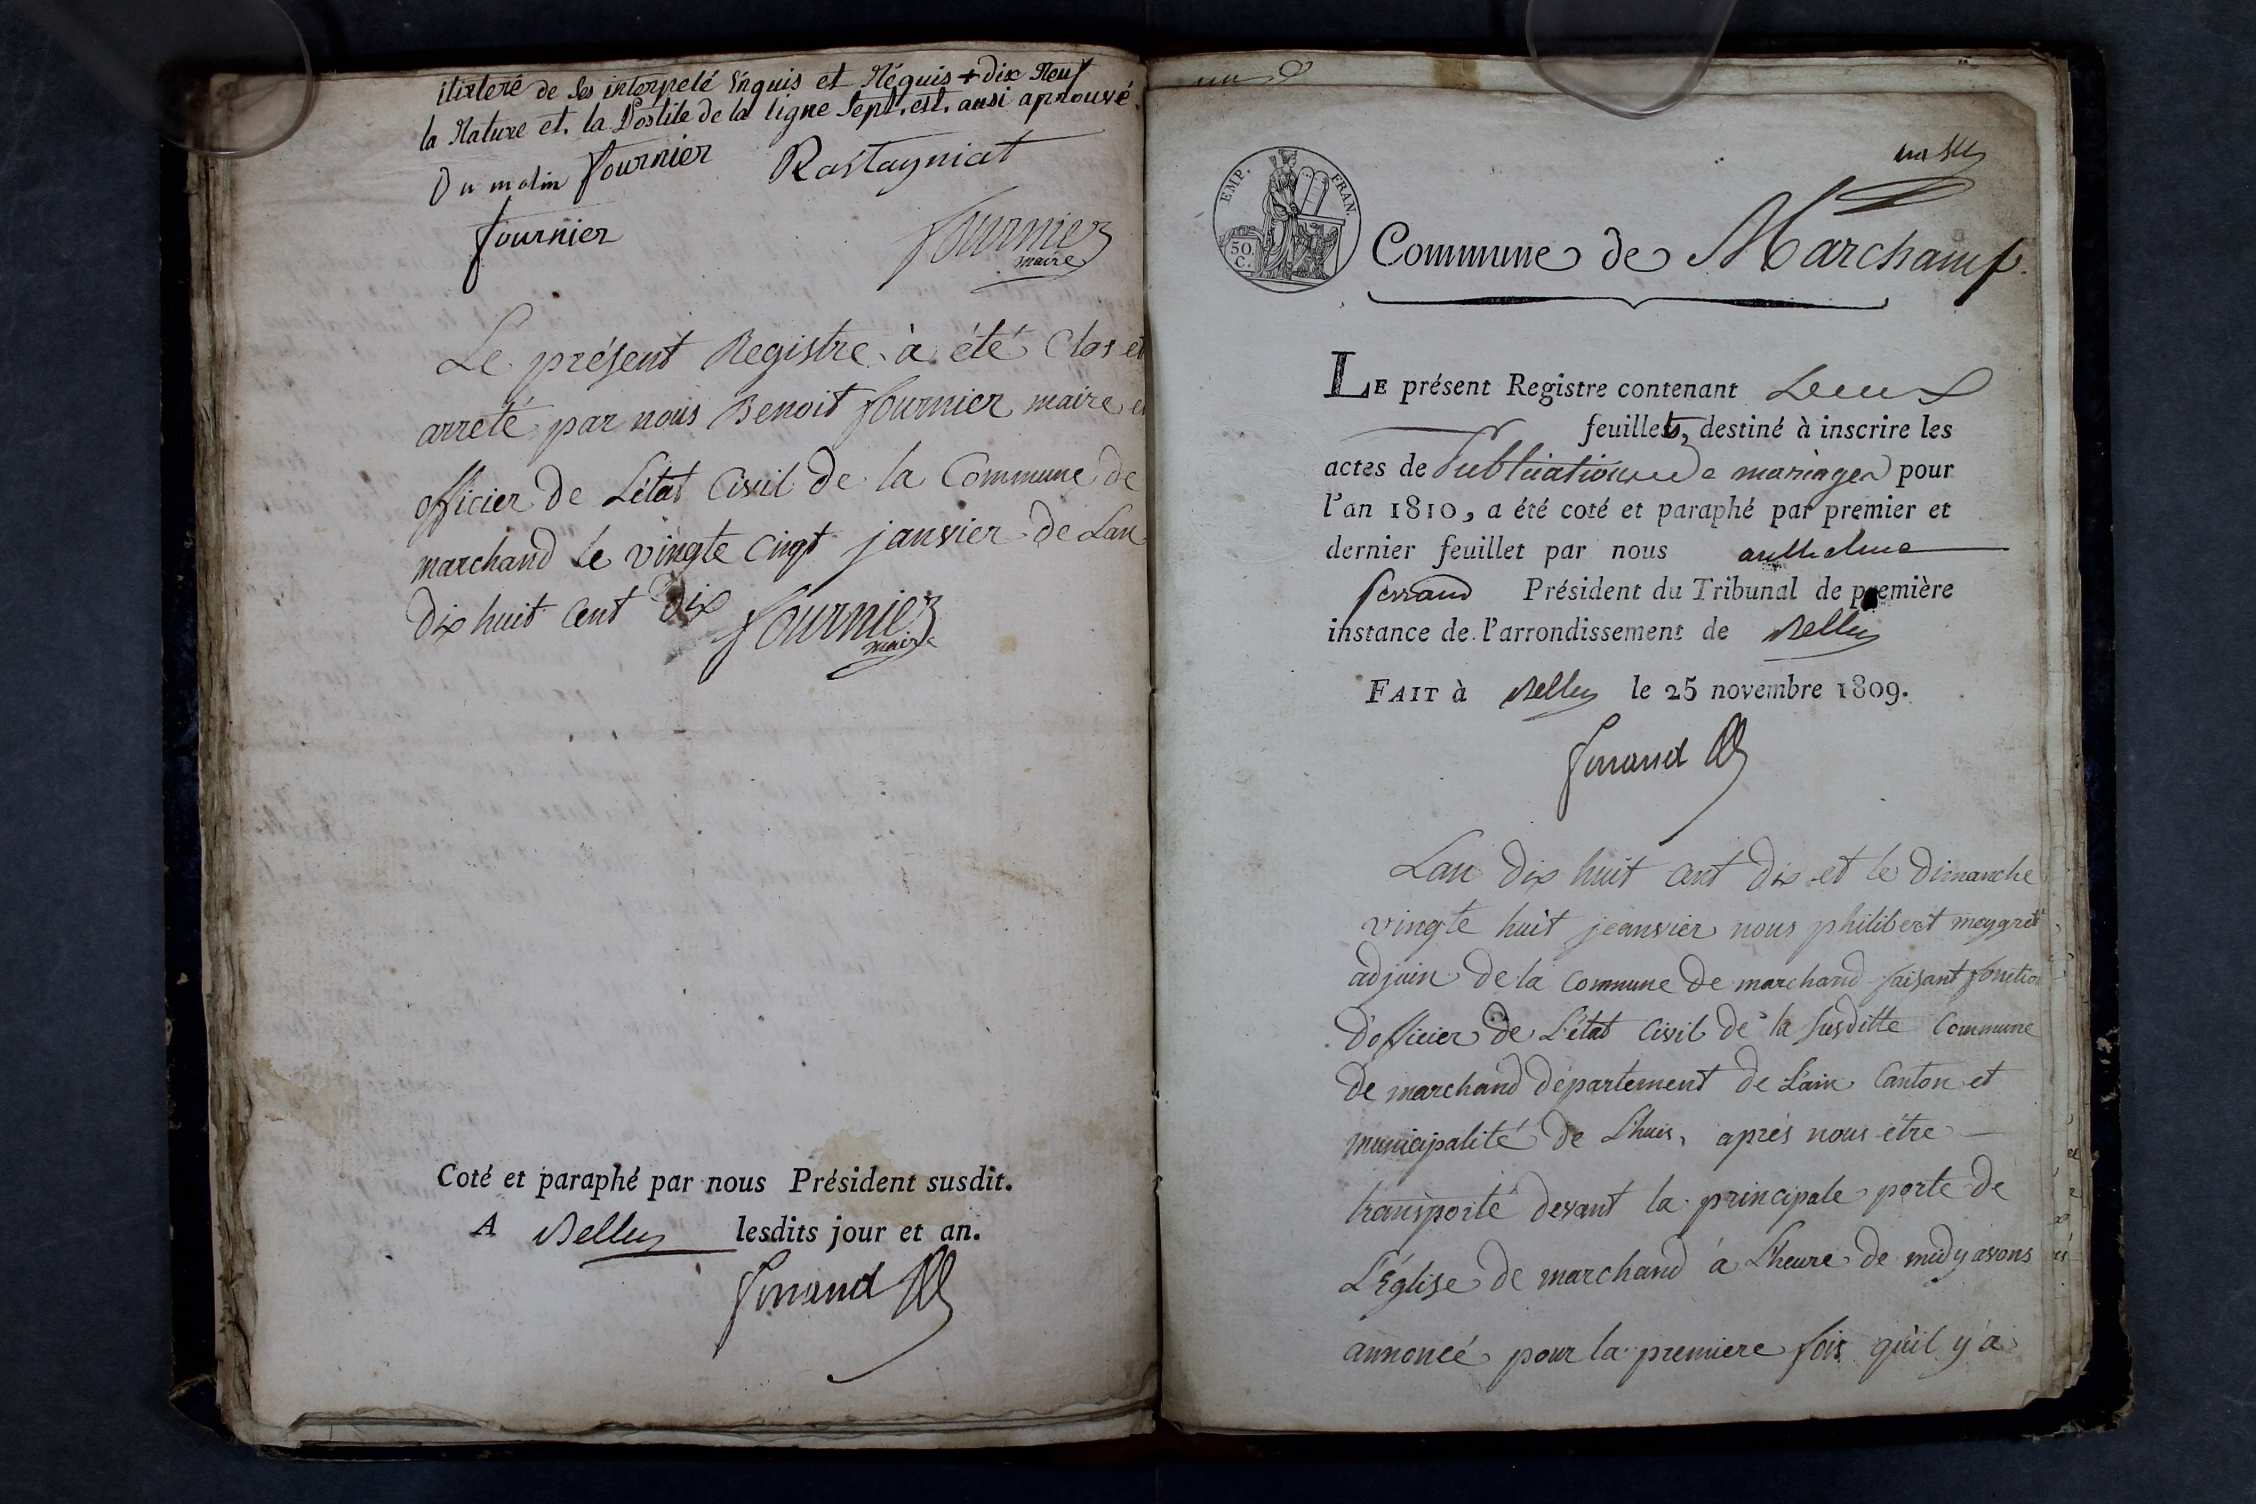 de les interpelé Enquis et Réquis + dix Neuf
la Nature et. la Postile de la ligne Sept. est. ausi aprouvé.
Du molin fournier Rastagniat
fournier
fournier
maire
Le présent Registre à été Clos et
arreté par nous Benoit fournier maire et
officier de L'état Civil de la Commune de
marchand le vingte cinqt janvier de Lan
dix huit cent dix fournier
maire
Coté et paraphé par nous Président susdit.
A Belley lesdits jour et an.
ferrand
EMP. FRAN.
50.
C.
Commune de Marchamp.
LE présent Registre contenant deux
feuillets, destiné à inscrire les
actes de Publications de mariages pour
l'an 1810, a été coté et paraphé par premier et
dernier feuillet par nous anthelme
ferrand Président du Tribunal de première
instance de l'arrondissement de Belley
FAIT à Belley le 25 novembre 1809.
ferrand
Lan dix huit cent dix et le dimanche
vingte huit jeanvier nous philibert meygret
adjoin de la Commune de marchand faisant fonction
d'officier de L'état Civil de la susditte Commune
de marchand département de L'ain Canton et
municipalité de Lhuis, après nous être
transporté devant la principale porte de
L'Église de marchand à L'heure de midy avons
annoncé pour la premiere fois qu'il y a